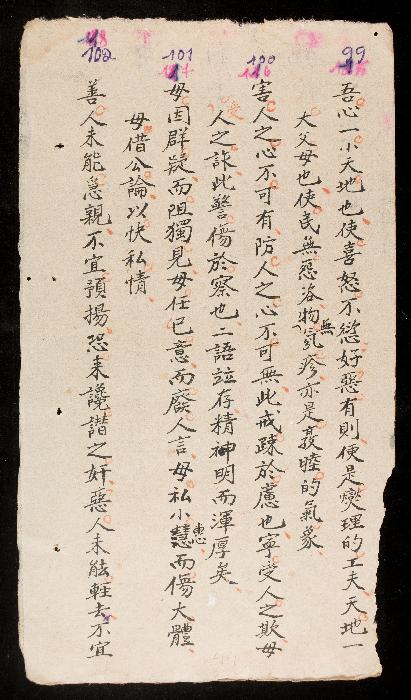 99
100
101
102
吾心一小天地也使喜怒不愆好惡有則便是燮理的工夫天地一
大父母也使民無怨咨物無氛疹亦是敦睦的氣象
害人之心不可有防人之心不可無此戒疎於慮也寧受人之欺毋
人之詐此警傷於察也二語竝存精神明而渾厚矣
毋因群疑而阻獨見毋任己意而廢人言毋私小惠而傷大體
毋借公論以快私情
善人未能急親不宜預揚恐来讒譖之奸惡人未能輕去不宜